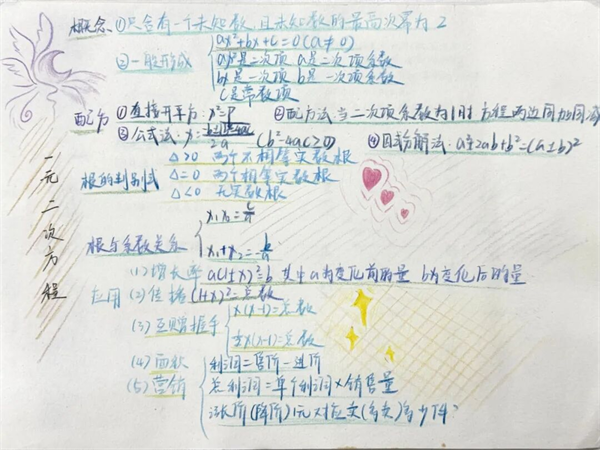 概念 ①只含有一个未知数,且未知数的最高次幂为2
②一般形式 ax²+bx+c=0(a≠0)
ax²是二次项 a是二次项系数
bx是一次项 b是一次项系数
c是常数项
配方 ①直接开平方:x²=P ②配方法:当二次项系数为1时 方程两边同加
③公式法:x= 2a (b²-4ac≥0) ④因式分解法:a²±2ab+b²=(a±b)²
根的判别式
△>0 两个不相等实数根
△=0 两个相等实数根
△<0 无实数根
一元二次方程
根与系数关系
x₁x₂=
x₁+x₂=-
应用
(1)增长率 a(1+x)²=b 其中a为变化前的量 b为变化后的量
(2)传播 (1+x)²=总数
(3)互赠握手
x(x-1)=总数
½x(x-1)=总数
(4)面积
(5)营销
利润=售价-进价
总利润=单个利润×销售量
涨价(降价)1元对应卖(多卖)多少件?